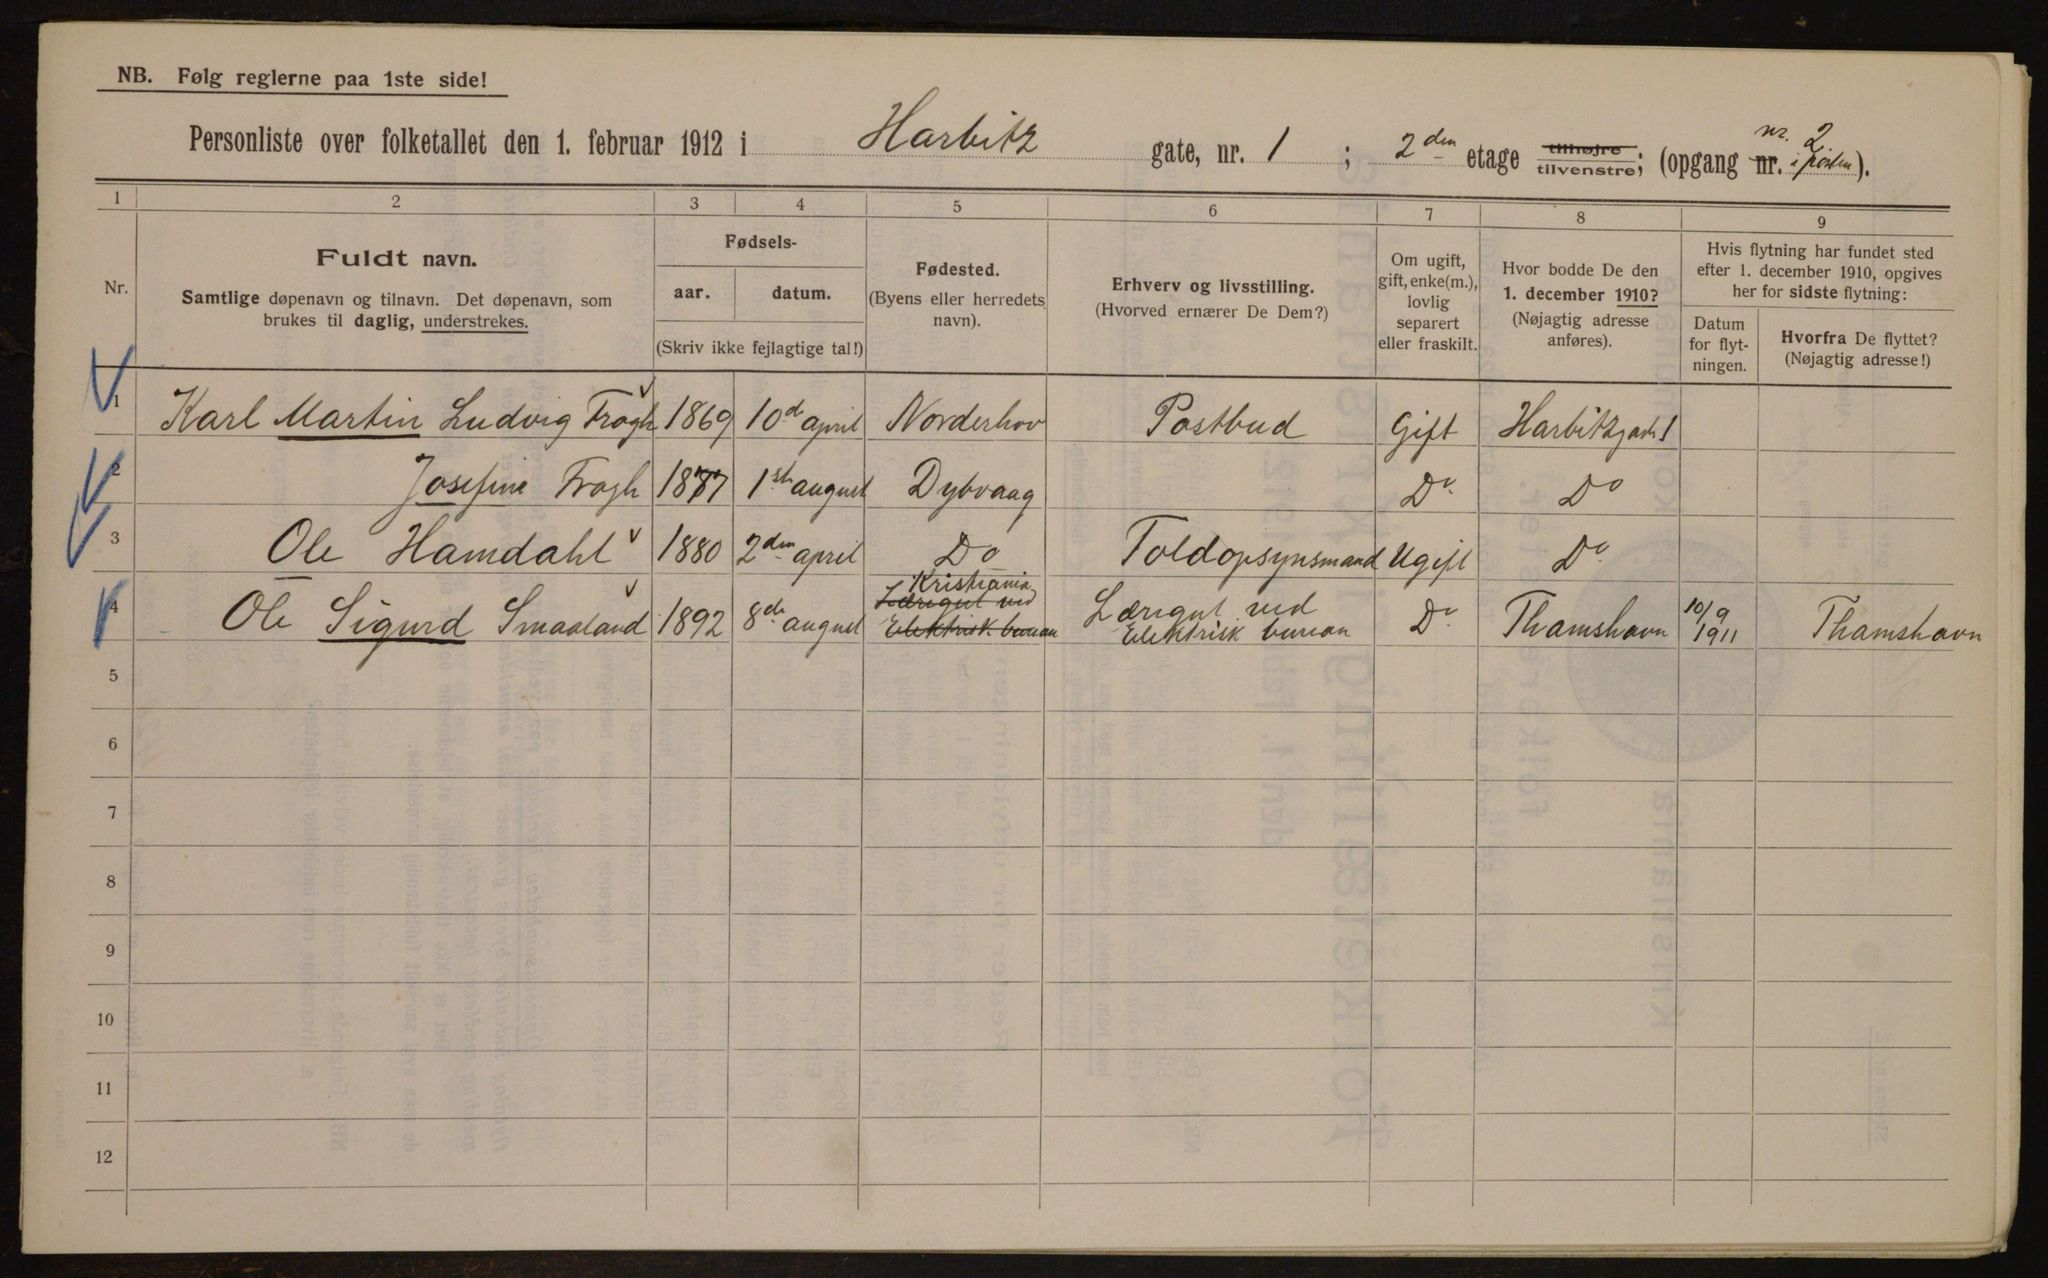 NB. Følg reglerne paa 1ste side!
Personliste over folketallet den 1. februar 1912 i Harbitz gate, nr. 1 ; 2den etage tilhøjre tilvenstre; (opgang nr. nr. 2 i porten).
1 2 3 4 5 6 7 8 9
Nr.
Fuldt navn.
Samtlige døpenavn og tilnavn. Det døpenavn, som
brukes til daglig, understrekes.
Fødsels-
aar. datum.
(Skriv ikke fejlagtige tal!)
Fødested.
(Byens eller herredets
navn).
Erhverv og livsstilling.
(Hvorved ernærer De Dem?)
Om ugift,
gift, enke(m.),
lovlig
separert
eller fraskilt.
Hvor bodde De den
1. december 1910?
(Nøjagtig adresse
anføres).
Hvis flytning har fundet sted
efter 1. december 1910, opgives
her for sidste flytning:
Datum
for flyt-
ningen.
Hvorfra De flyttet?
(Nøjagtig adresse!)
1 Karl Martin Ludvig Frogh 1869 10d april Norderhov Postbud Gift Harbitzgade 1
2 Josefine Frogh 1877 1st august Dybvaag Do Do
3 Ole Hamdahl 1880 2den april Do Toldopsynsmand Ugift Do
4 Ole Sigurd Smaaland 1892 8de august Kristiania Læregut ved Elektrisk bureau Læregut ved Elektrisk bureau Do Thamshavn 10/9 1911 Thamshavn
5
6
7
8
9
10
11
12